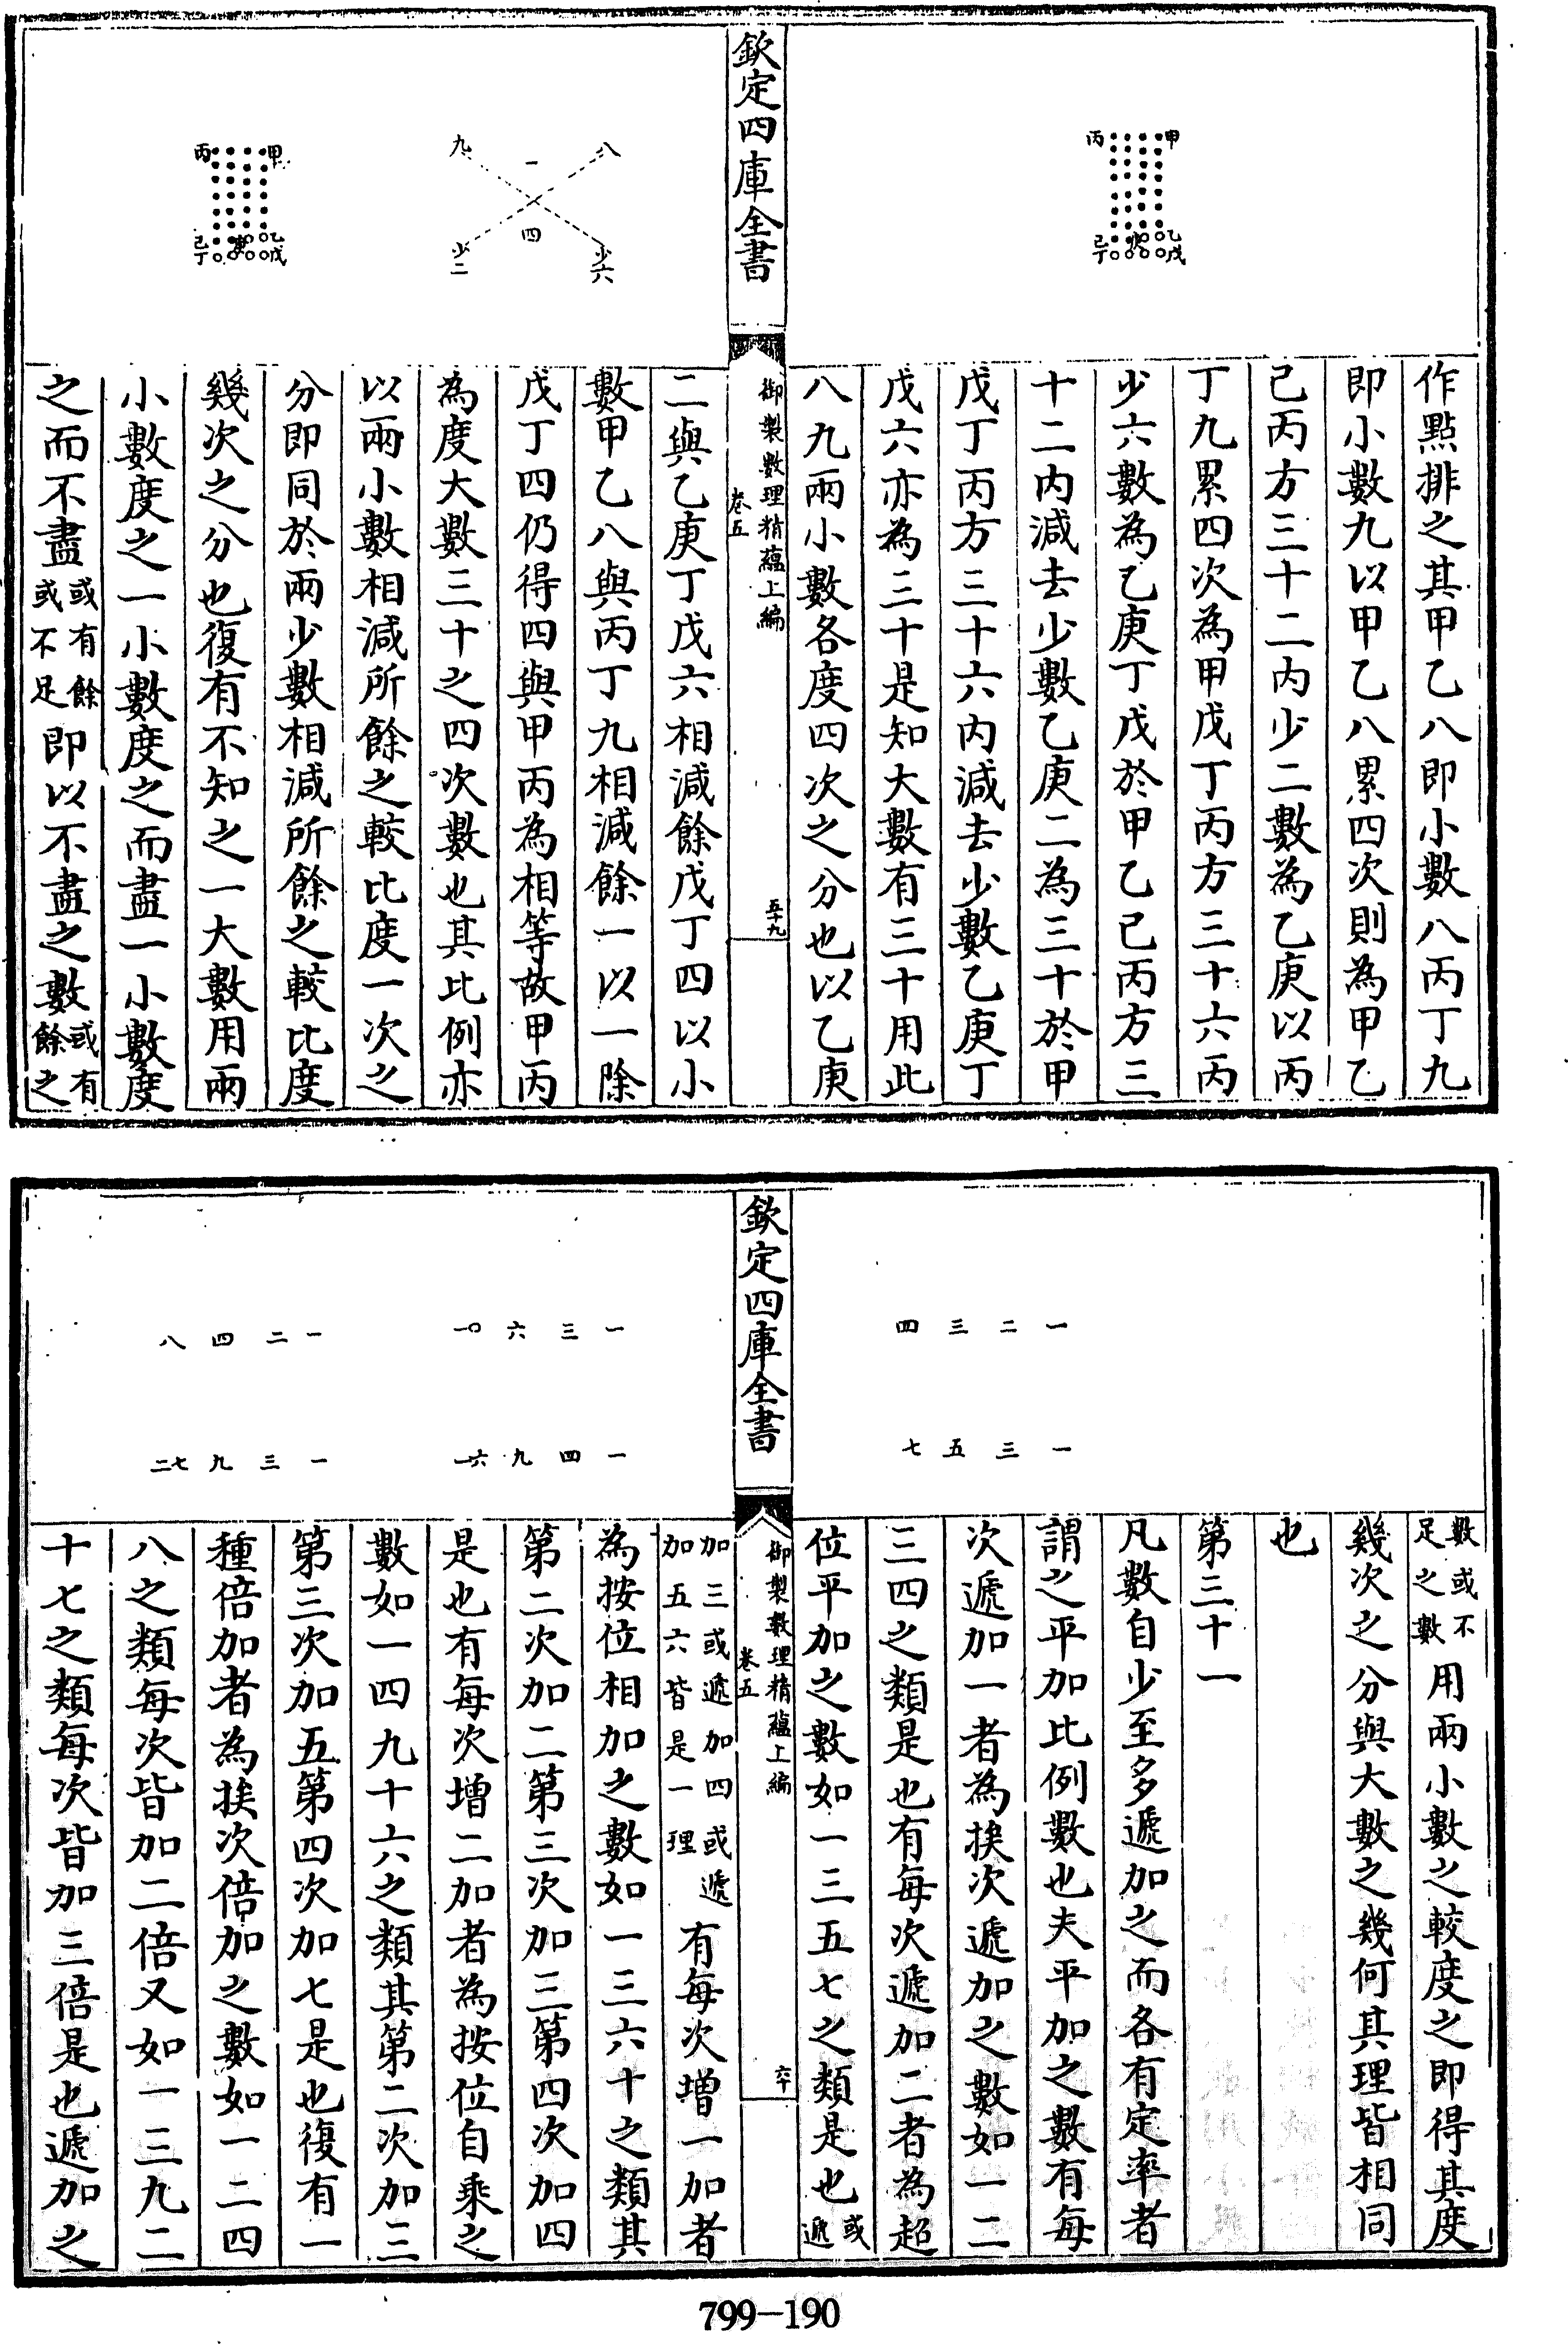 丙 甲
己 庚 乙
丁 戊
作點排之其甲乙八即小數八丙丁九
即小數九以甲乙八累四次則為甲乙
己丙方三十二内少二數為乙庚以丙
丁九累四次為甲戊丁丙方三十六丙
少六數為乙庚丁戊於甲乙已丙方三
十二内減去少數乙庚二為三十於甲
戊丁丙方三十六内減去少數乙庚丁
戊六亦為三十是知大數有三十用此
八九兩小數各度四次之分也以乙庚
欽定四庫全書
御製數理精蘊上編
卷五
五十九
八 一 九
少六 四 少二
甲 丙
乙 庚 己
戊 丁
二與乙庚丁戊六相減餘戊丁四以小
數甲乙八與丙丁九相減餘一以一除
戊丁四仍得四與甲丙為相等故甲丙
為度大數三十之四次數也其比例亦
以兩小數相減所餘之較比度一次之
分即同於兩少數相減所餘之較比度
幾次之分也復有不知之一大數用兩
小數度之一小數度之而盡一小數度
之而不盡或有餘或不足即以不盡之數或有餘之
數或不足之數用兩小數之較度之即得其度
幾次之分與大數之幾何其理皆相同
也
第三十一
凡數自少至多遞加之而各有定率者
謂之平加比例數也夫平加之數有每
次遞加一者為挨次遞加之數如一二
三四之類是也有每次遞加二者為超
位平加之數如一三五七之類是也或遞
一 二 三 四
一 三 五 七
欽定四庫全書
御製數理精蘊上編
卷五
六十
一 三 六 一〇
一 四 九 一六
一 二 四 八
一 三 九 二七
加三或遞加四或遞
加五六皆是一理有每次增一加者
為按位相加之數如一三六十之類其
第二次加二第三次加三第四次加四
是也有每次增二加者為按位自乘之
數如一四九十六之類其第二次加三
第三次加五第四次加七是也復有一
種倍加者為挨次倍加之數如一二四
八之類每次皆加二倍又如一三九二
十七之類每次皆加三倍是也遞加之
799-190